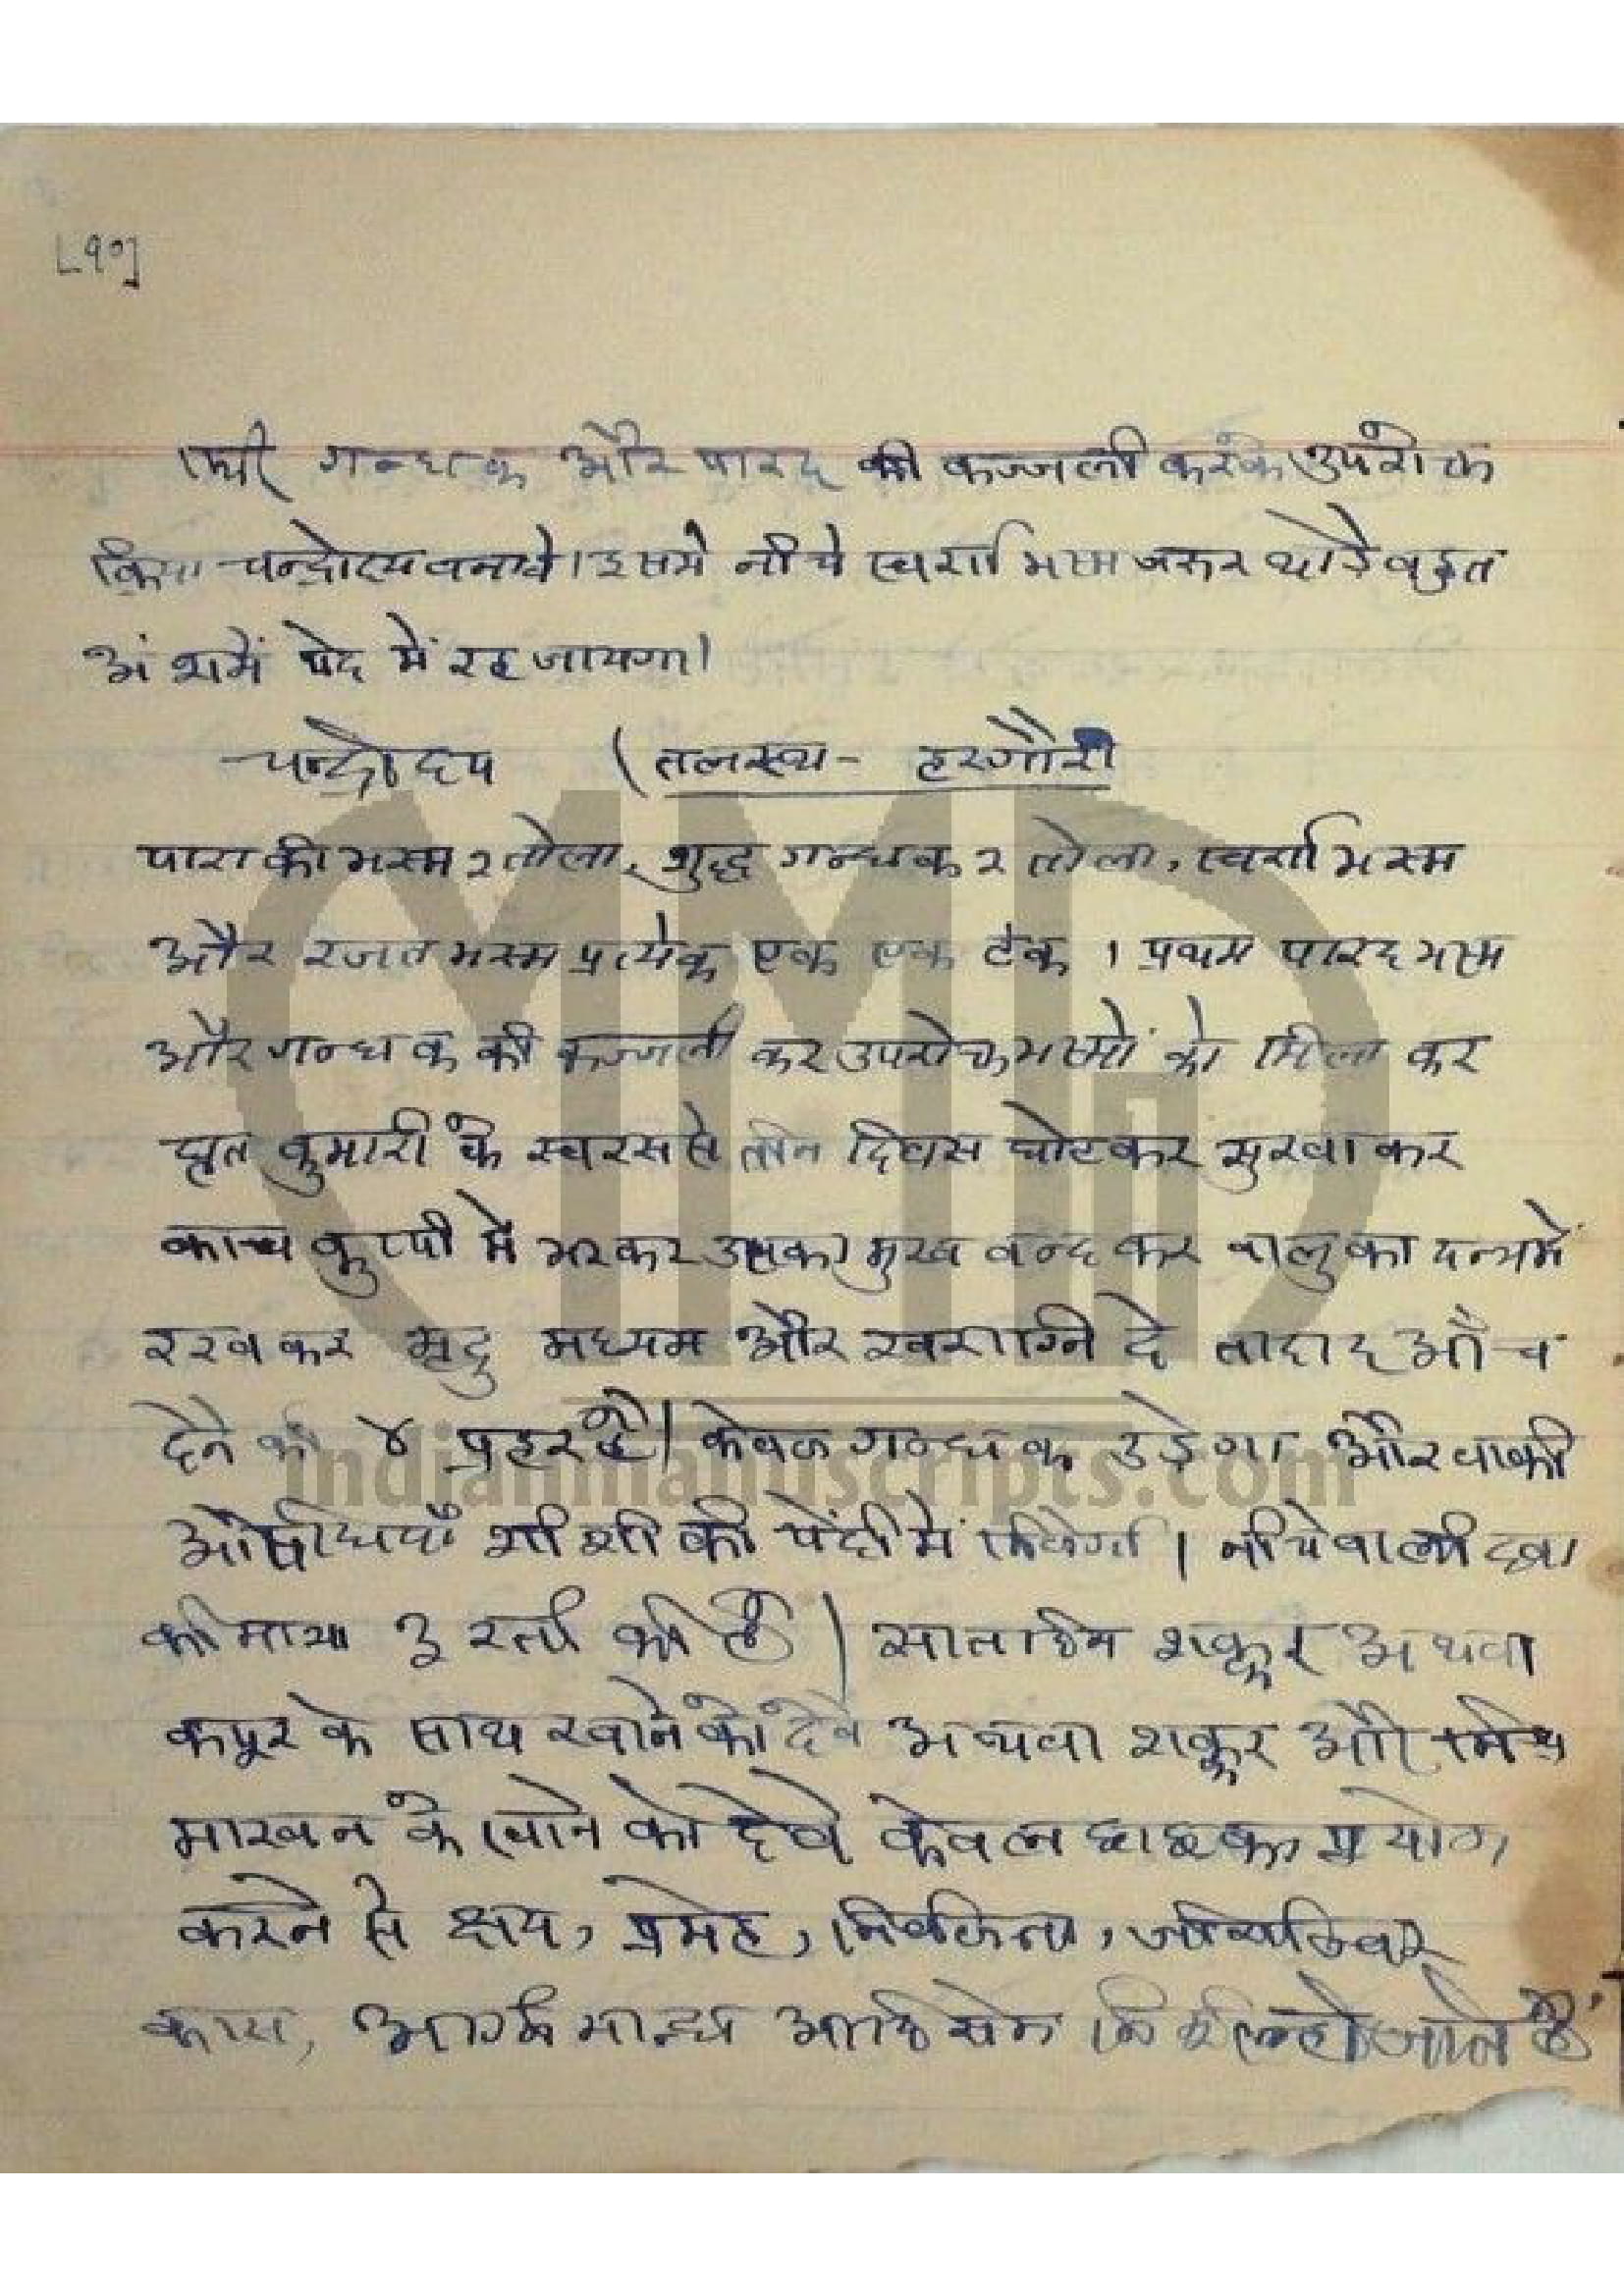 [१०]
गन्धक और पारद की कज्जली करके उपरोक्त
क्रिया चन्द्रोदय बनावे। इसमे नीचे स्वर्ण भस्म जरुर थोडे बहुत
अंशमें पेंदे में रह जायगा।
चन्द्रोदय (तलस्थ - हरगौरी
पारा की भस्म २ तोला, शुद्ध गन्धक २ तोला, स्वर्ण भस्म
और रजत भस्म प्रत्येक एक एक टंक । प्रथम पारद भस्म
और गन्धक की कज्जली कर उपरोक्त भस्मों को मिला कर
घृत कुमारी के स्वरस से तीन दिवस घोटकर सुखा कर
काच कुप्पी मे भर कर उसका मुख बन्द कर बालुका यन्त्रमें
रख कर मृदु मध्यम और खराग्नि दे तादाद आँच
देने की ४ प्रहर है। केवल गन्धक उड़ेगा और बाकी
औषधियाँ शीशी की पेंदी में मिलेगी। नीचे वाली दवा
की मात्रा ३ रत्ती की है। सात दिन शक्कर अथवा
कपूर के साथ खाने को देवे अथवा शक्कर और
माखन के खाने को देवे केवल छाछ का प्रयोग
करने से क्षय, प्रमेह, निर्बलता, जीर्णज्वर
कास, अग्निमान्द्य आदि रोग निर्मूल हो जाते हैं
MMD
indianmanuscripts.com